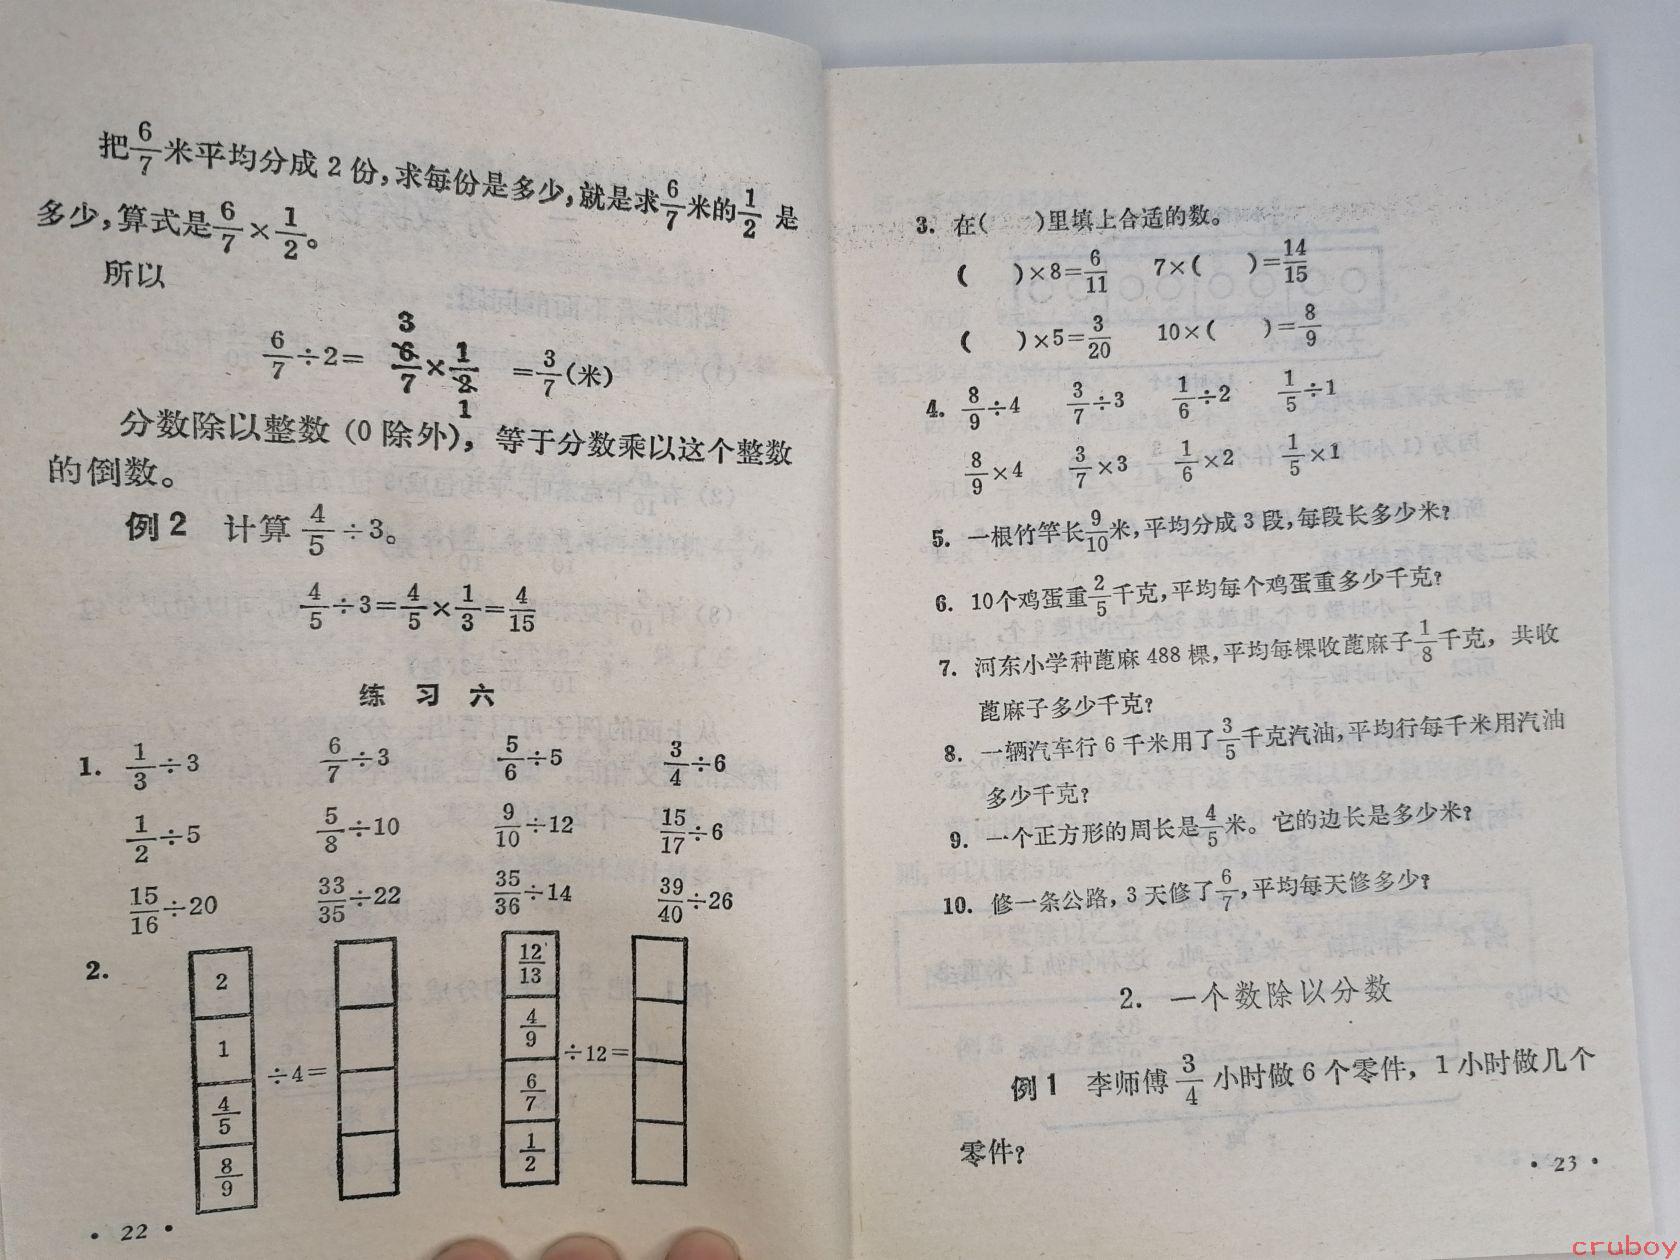 把6/7米平均分成 2 份,求每份是多少,就是求6/7米的1/2 是
多少,算式是6/7×1/2。
所以
3
6/7÷2= 6/7×1/2 =3/7(米)
1
分数除以整数 (0 除外), 等于分数乘以这个整数
的倒数。
例 2 计算 4/5÷3。
4/5÷3=4/5×1/3=4/15
练 习 六
1. 1/3÷3 6/7÷3 5/6÷5 3/4÷6
1/2÷5 5/8÷10 9/10÷12 15/17÷6
15/16÷20 33/35÷22 35/36÷14 39/40÷26
2.
2
1
4/5
8/9
÷4=
12/13
4/9
6/7
1/2
÷12=
· 22 ·
3. 在( )里填上合适的数。
( )×8=6/11 7×( )=14/15
( )×5=3/20 10×( )=8/9
4. 8/9÷4 3/7÷3 1/6÷2 1/5÷1
8/9×4 3/7×3 1/6×2 1/5×1
5. 一根竹竿长9/10米,平均分成 3 段,每段长多少米?
6. 10个鸡蛋重2/5千克,平均每个鸡蛋重多少千克?
7. 河东小学种蓖麻 488 棵,平均每棵收蓖麻子1/8千克, 共收
蓖麻子多少千克?
8. 一辆汽车行 6 千米用了3/5千克汽油,平均行每千米用汽油
多少千克?
9. 一个正方形的周长是4/5米。它的边长是多少米?
10. 修一条公路, 3 天修了6/7,平均每天修多少?
2. 一个数除以分数
例 1 李师傅3/4小时做 6 个零件, 1 小时做几个
零件?
· 23 ·
cruboy